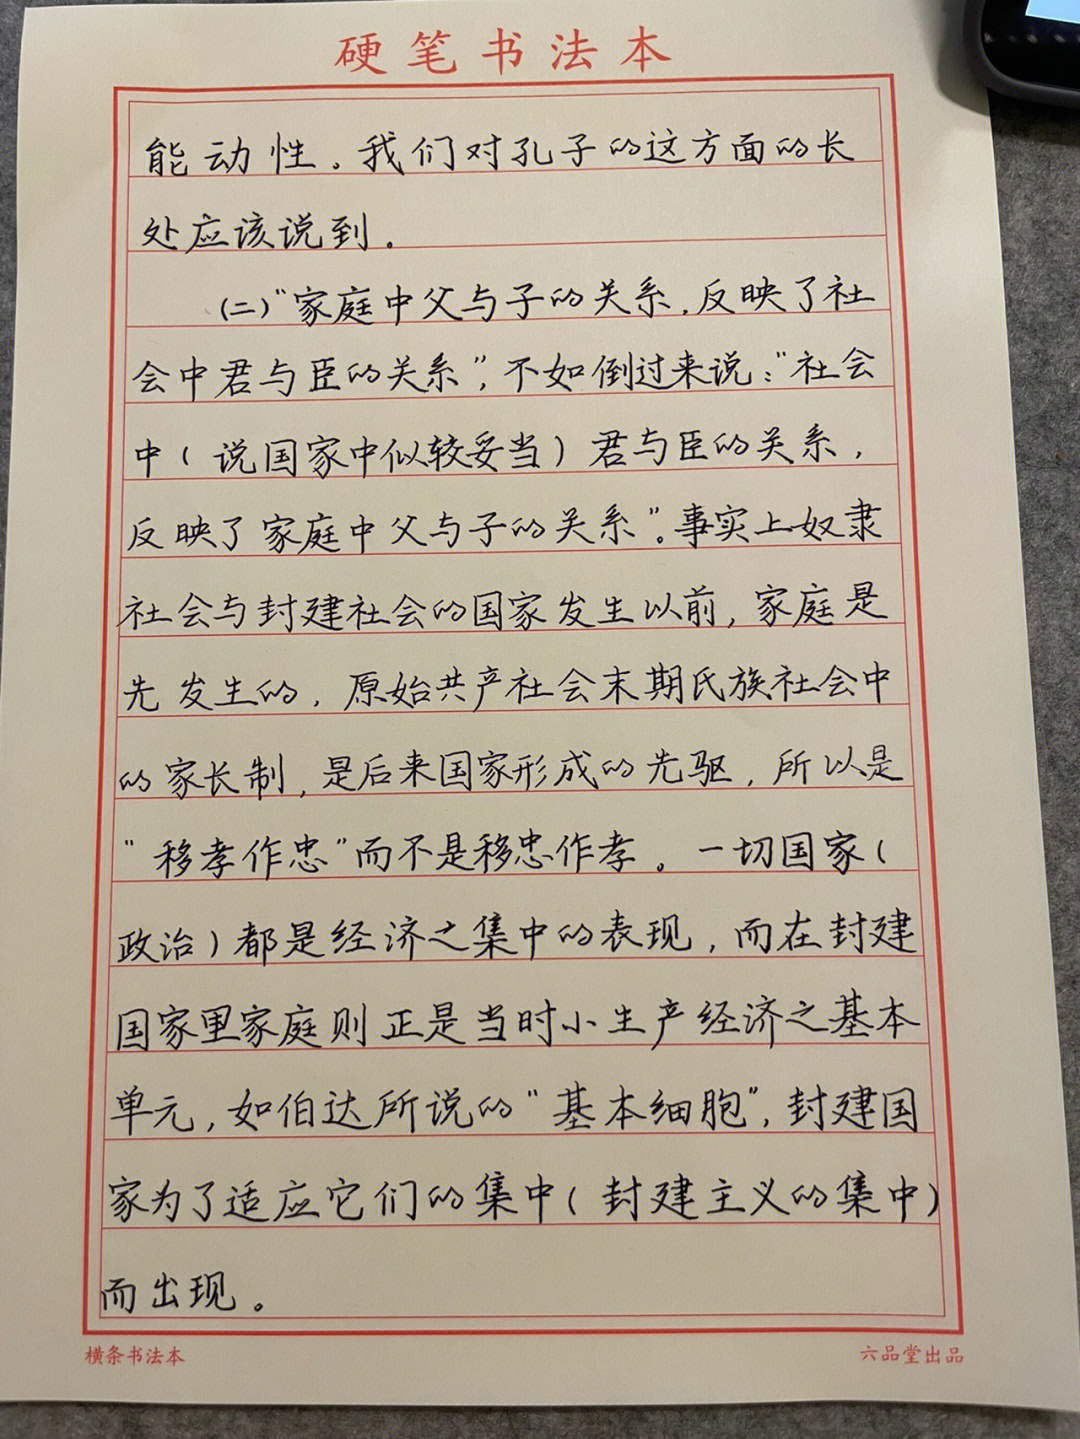 硬笔书法本
能动性。我们对孔子的这方面的长
处应该说到。
(二)“家庭中父与子的关系,反映了社
会中君与臣的关系”,不如倒过来说:“社会
中(说国家中似较妥当)君与臣的关系,
反映了家庭中父与子的关系”。事实上奴隶
社会与封建社会的国家发生以前,家庭是
先发生的,原始共产社会末期氏族社会中
的家长制,是后来国家形成的先驱,所以是
“移孝作忠”而不是移忠作孝。一切国家(
政治)都是经济之集中的表现,而在封建
国家里家庭则正是当时小生产经济之基本
单元,如伯达所说的“基本细胞”,封建国
家为了适应它们的集中(封建主义的集中)
而出现。
横条书法本
六品堂出品